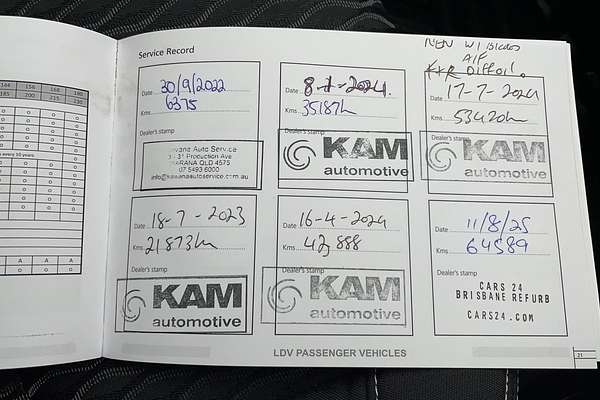 144 156 168 180
185 200 215 230
every 10 years
A A A A
Service Record
NEW W/Blades
A/F
F+R Diff oil.
Date 30/9/2022
Kms 6375
Dealer's stamp
Auto Service
31 Production Ave
QLD 4575
07 5493 6000
info@kawanaautoservice.com.au
Date 8-1-2024.
Kms 35187k
Dealer's stamp
KAM
automotive
Date 17-7-2024
Kms 53420k
Dealer's stamp
KAM
automotive
Date 18-7-2023
Kms 21873k
Dealer's stamp
KAM
automotive
Date 16-4-2024
Kms 42,888
Dealer's stamp
KAM
automotive
Date 11/8/25
Kms 64589
Dealer's stamp
CARS 24
BRISBANE REFURB
CARS24.COM
LDV PASSENGER VEHICLES
21